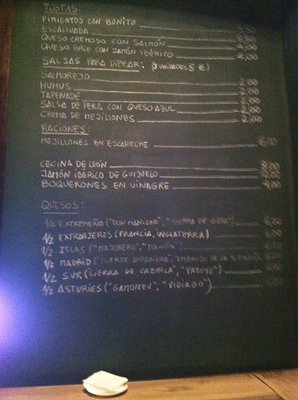 TOSTAS:
PIMIENTOS CON BONITO
ESCALIVADA
QUESO CREMOSO CON SALMÓN
QUESO BRIE CON JAMÓN IBÉRICO
SALSAS PARA DIPEAR: (3 UNIDADES 5 €)
SALMOREJO 2,00
HUMUS 2,00
TAPENADE 2,00
SALSA DE PERA CON QUESO AZUL 2,00
CREMA DE MEJILLONES 2,00
RACIONES:
MEJILLONES EN ESCABECHE
CECINA DE LEÓN
JAMÓN IBÉRICO DE GUIJUELO
BOQUERONES EN VINAGRE
QUESOS:
1/2 EXTREMEÑA ("DON MARIANO", "SIERRA DE GATA") 6,00
1/2 EXTRANJERIS (FRANCIA, INGLATERRA) 6,00
1/2 ISLAS ("MAJORERO", "MAHÓN") 6,00
1/2 MADRID 6,00
1/2 SUR (SIERRA DE CAZORLA, "PAYOYO") 6,00
1/2 ASTURIES ("GAMONEU", "PIDIAGO") 6,00